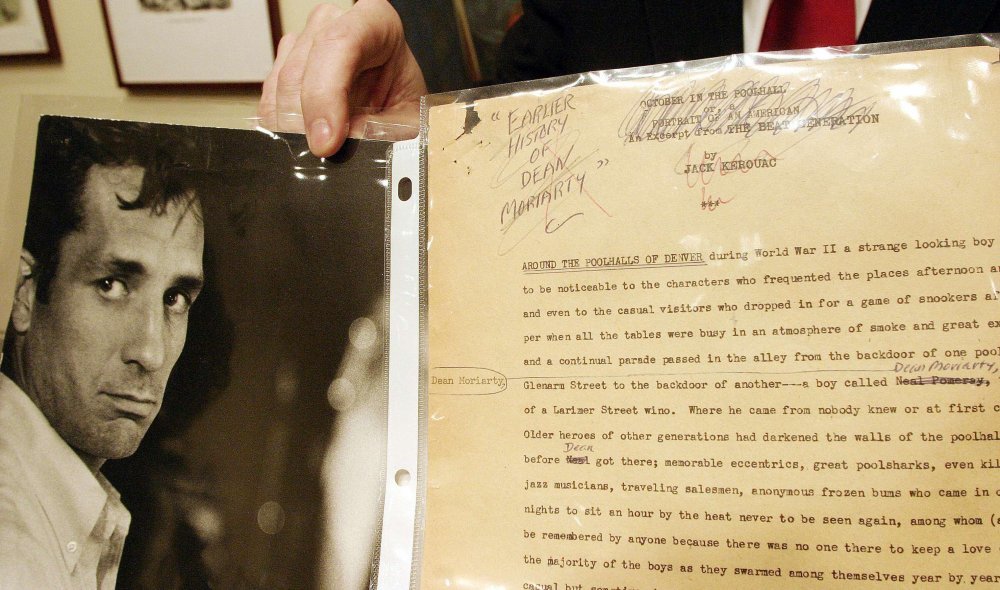 " EARLIER
HISTORY
OF
DEAN
MORIARTY "
OCTOBER IN THE POOLHALL
or, a
PORTRAIT OF AN AMERICAN
An Excerpt from THE BEAT GENERATION
by
JACK KEROUAC
***
AROUND THE POOLHALLS OF DENVER during World War II a strange looking boy
to be noticeable to the characters who frequented the places afternoon a
and even to the casual visitors who dropped in for a game of snookers a
per when all the tables were busy in an atmosphere of smoke and great ex
and a continual parade passed in the alley from the backdoor of one pool
Dean Moriarty,
Dean Moriarty,
Glenarm Street to the backdoor of another---a boy called Neal Pomeray,
of a Larimer Street wino. Where he came from nobody knew or at first c
Older heroes of other generations had darkened the walls of the poolhal
Dean
before Neal got there; memorable eccentrics, great poolsharks, even kil
jazz musicians, traveling salesmen, anonymous frozen bums who came in o
nights to sit an hour by the heat never to be seen again, among whom (a
be remembered by anyone because there was no one there to keep a love
the majority of the boys as they swarmed among themselves year by year
casual but